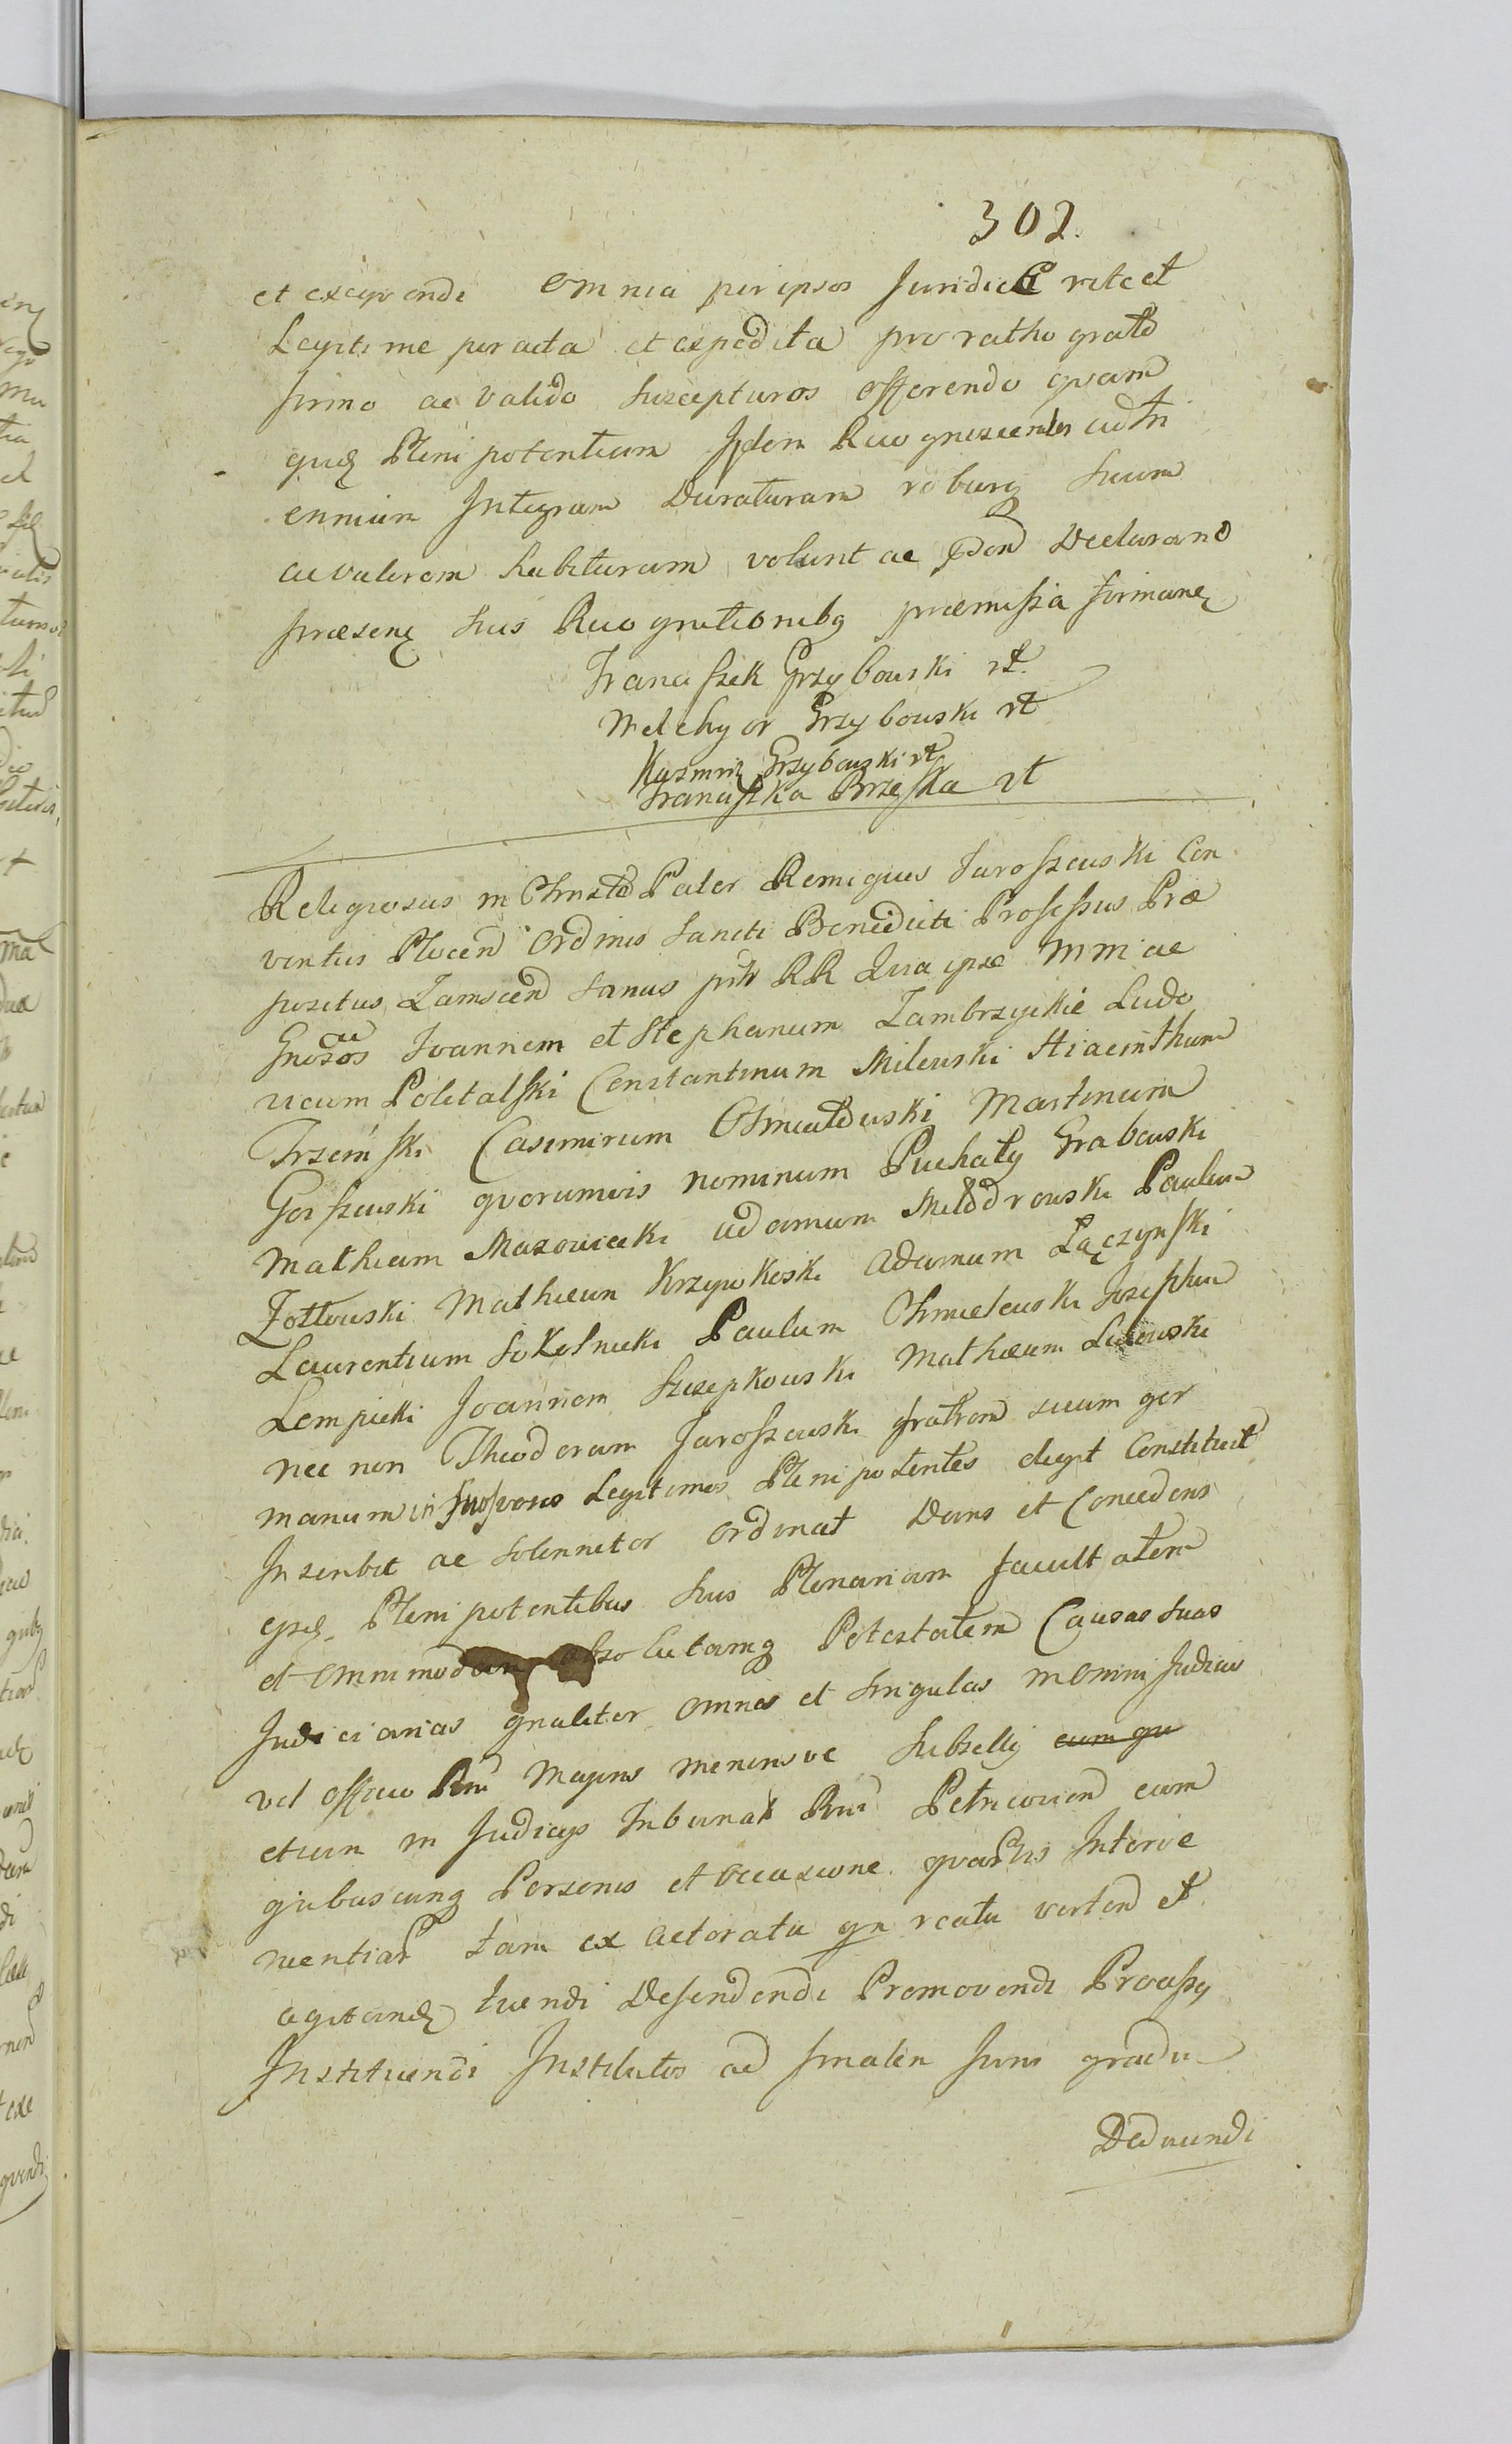 302.
et exequendi omnia per ipsos Juridice rite et
Legitime peracta et expedita pro ratho grato
firmo ac valido suscepturos offerendo quam
quid Plenipotentiam Jidem Recognoscentes ad tri
ennium Integram Duraturam roburq suum
ac valorem habituram volunt ac Declarand
præsen suis Recognitionibq præmissa firman
Franciszek Grzybowski rt.
Melchyor Grzybowski rt
Kazmirz Grzybowski rt
Franciszka Brzeska rt
Religiosus in Christo Pater Remigius Jaroszewski Con
ventus Plocen Ordinis Sancti Benedicti Professus Præ
positus sanus RR Qua ipse MM ac
Gnosos Joannem et Stephanum Zambrzyckie Ludo
vicum Poletalski Constantinum Milewski Hiacinthum
Trzciński Casimirum Martinum
Gosszewski quorumvis nominum Puchały Grabowski
Mathæum Mazowiecki adamum Modrowski Paulum
Zołtowski Mathæum Krzywkoski Adamum Łączynski
Laurentium Sokolnicki Paulum Chmielewski Josephum
Lempicki Joannem Szczepkowski Mathæum
nec non Theodorum Jaroszewski fratrem suum ger
manum in suos veros Legitimos Plenipotentes elegit Constituit
Inscribit ac solenniter ordinat Dans et Concedens
ipsd. Plenipotentibus suis Plenariam facultatem
et omnimodam absolutamq Potestatem Causas suas
Judiciarias gnaliter omnes et singulas in omni Judicio
vel officio Rni Majoris minorisve Subsellij cum qu
etiam in Judicijs Tribunal Rni Petricovien cum
quibuscunq Personis et occasione quarumvis Interve
nientiar tam ex actoratu qn reatu verten et
agitand tuendi Defendendi Promovendi Processq
Instituendi Institutos ad finalem Juris gradu
Deducendi